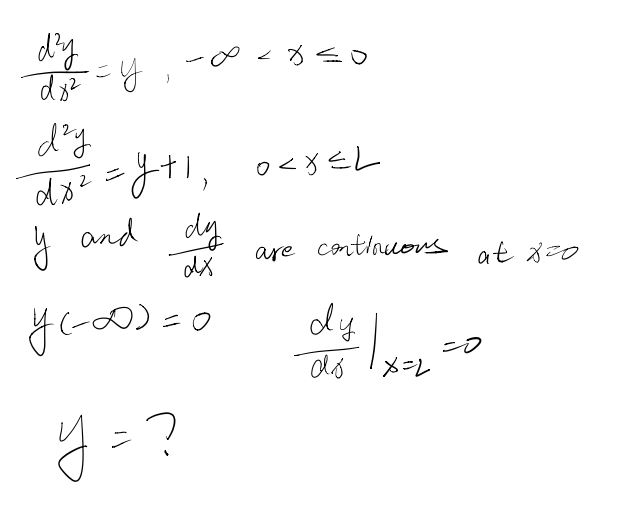 d²y/dx² = y, -∞ < x ≤ 0
d²y/dx² = y+1, 0 < x ≤ L
y and dy/dx are continuous at x=0
y(-∞) = 0    dy/dx|ₓ₌L = 0
y = ?